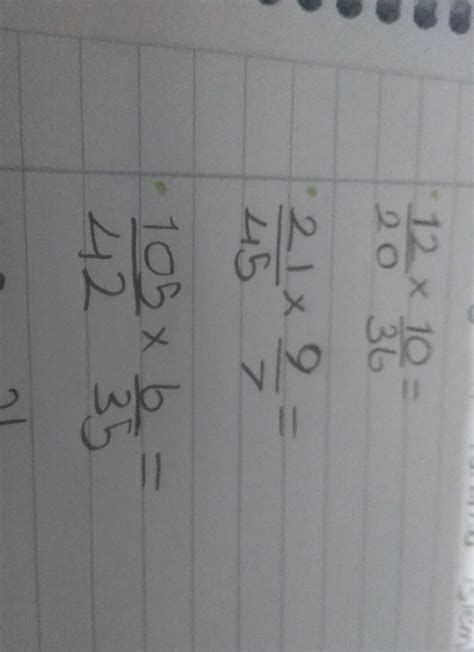 12/20 × 10/36 =
21/45 × 9/7 =
105/42 × 6/35 =